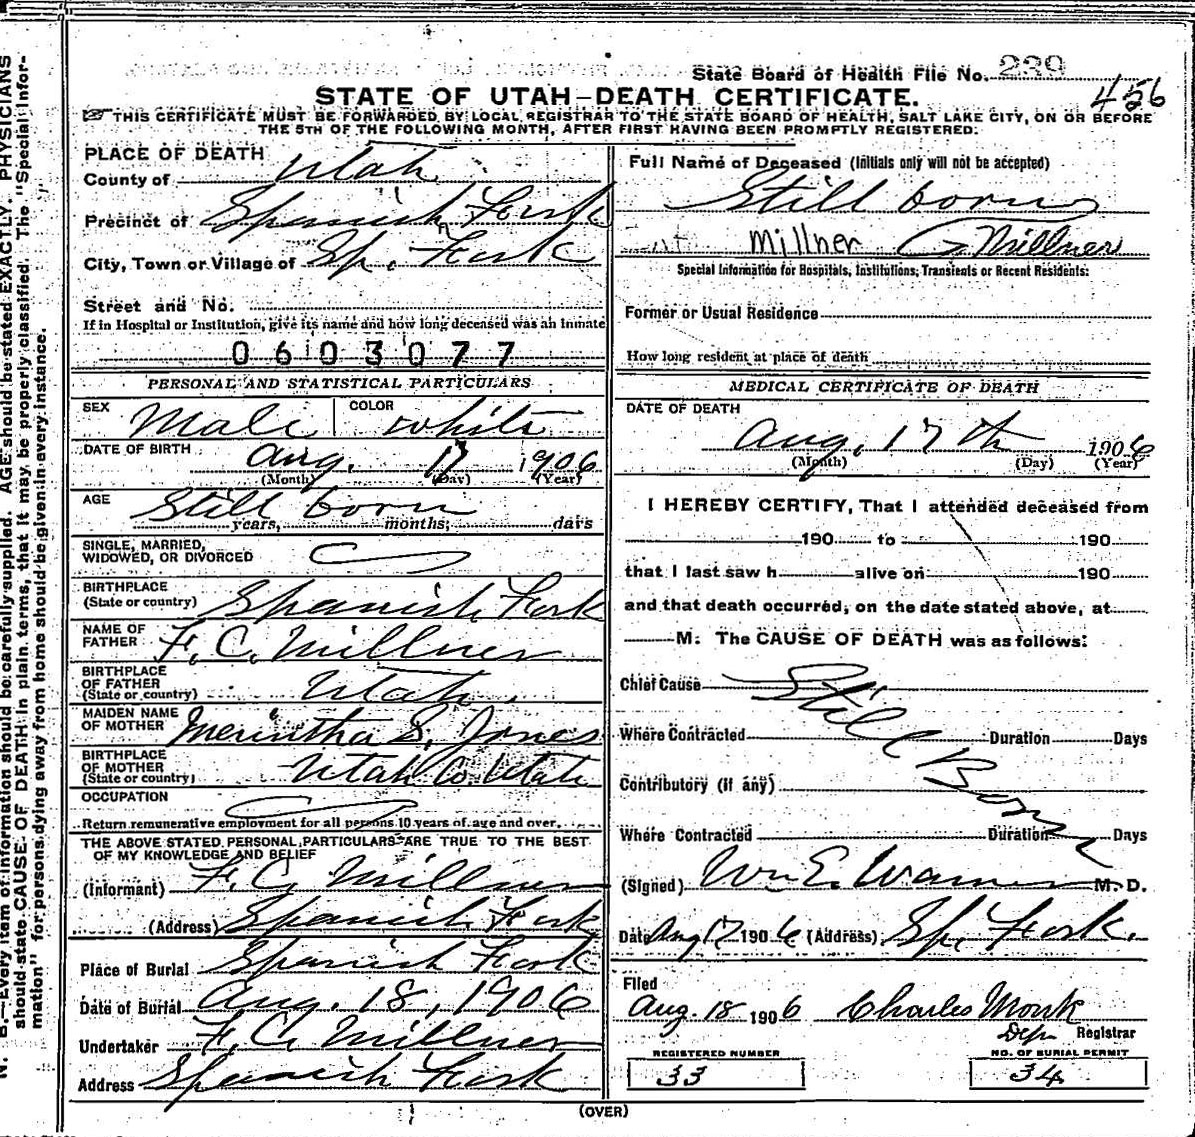 State Board of Health File No. 239
456
STATE OF UTAH—DEATH CERTIFICATE.
☞ THIS CERTIFICATE MUST BE FORWARDED BY LOCAL REGISTRAR TO THE STATE BOARD OF HEALTH, SALT LAKE CITY, ON OR BEFORE
THE 5TH OF THE FOLLOWING MONTH, AFTER FIRST HAVING BEEN PROMPTLY REGISTERED.
PLACE OF DEATH
County of Utah
Precinct of Spanish Fork
City, Town or Village of Sp. Fork
Street and No.
If in Hospital or Institution, give its name and how long deceased was an inmate
0603077
PERSONAL AND STATISTICAL PARTICULARS
SEX Male COLOR white
DATE OF BIRTH Aug. 17 1906
(Month) (Day) (Year)
AGE Still born
years, months, days
SINGLE, MARRIED,
WIDOWED, OR DIVORCED
BIRTHPLACE
(State or country) Spanish Fork
NAME OF
FATHER F. C. Millner
BIRTHPLACE
OF FATHER
(State or country) Utah
MAIDEN NAME
OF MOTHER Merintha S. Jones
BIRTHPLACE
OF MOTHER
(State or country) Utah Co. Utah
OCCUPATION
Return remunerative employment for all persons 10 years of age and over.
THE ABOVE STATED PERSONAL PARTICULARS ARE TRUE TO THE BEST
OF MY KNOWLEDGE AND BELIEF
(Informant) F. C. Millner
(Address) Spanish Fork
Place of Burial Spanish Fork
Date of Burial Aug. 18, 1906
Undertaker F. C. Millner
Address Spanish Fork
Full Name of Deceased (Initials only will not be accepted)
Still born
Millner Millner
Special Information for Hospitals, Institutions, Transients or Recent Residents:
Former or Usual Residence
How long resident at place of death
MEDICAL CERTIFICATE OF DEATH
DATE OF DEATH
Aug. 17th 1906
(Month) (Day) (Year)
I HEREBY CERTIFY, That I attended deceased from
190 to 190
that I last saw h alive on 190
and that death occurred, on the date stated above, at
M. The CAUSE OF DEATH was as follows:
Chief Cause Still Born
Where Contracted Duration Days
Contributory (if any)
Where Contracted Duration Days
(Signed) Wm E. Warner M. D.
Date Aug 17 1906 (Address) Sp. Fork.
Filed
Aug. 18 1906 Charles Monk
Dep. Registrar
REGISTERED NUMBER
33
NO. OF BURIAL PERMIT
34
(OVER)
N. B.—Every item of information should be carefully supplied. AGE should be stated EXACTLY. PHYSICIANS
should state CAUSE OF DEATH in plain terms, that it may be properly classified. The "Special Infor-
mation" for persons dying away from home should be given in every instance.